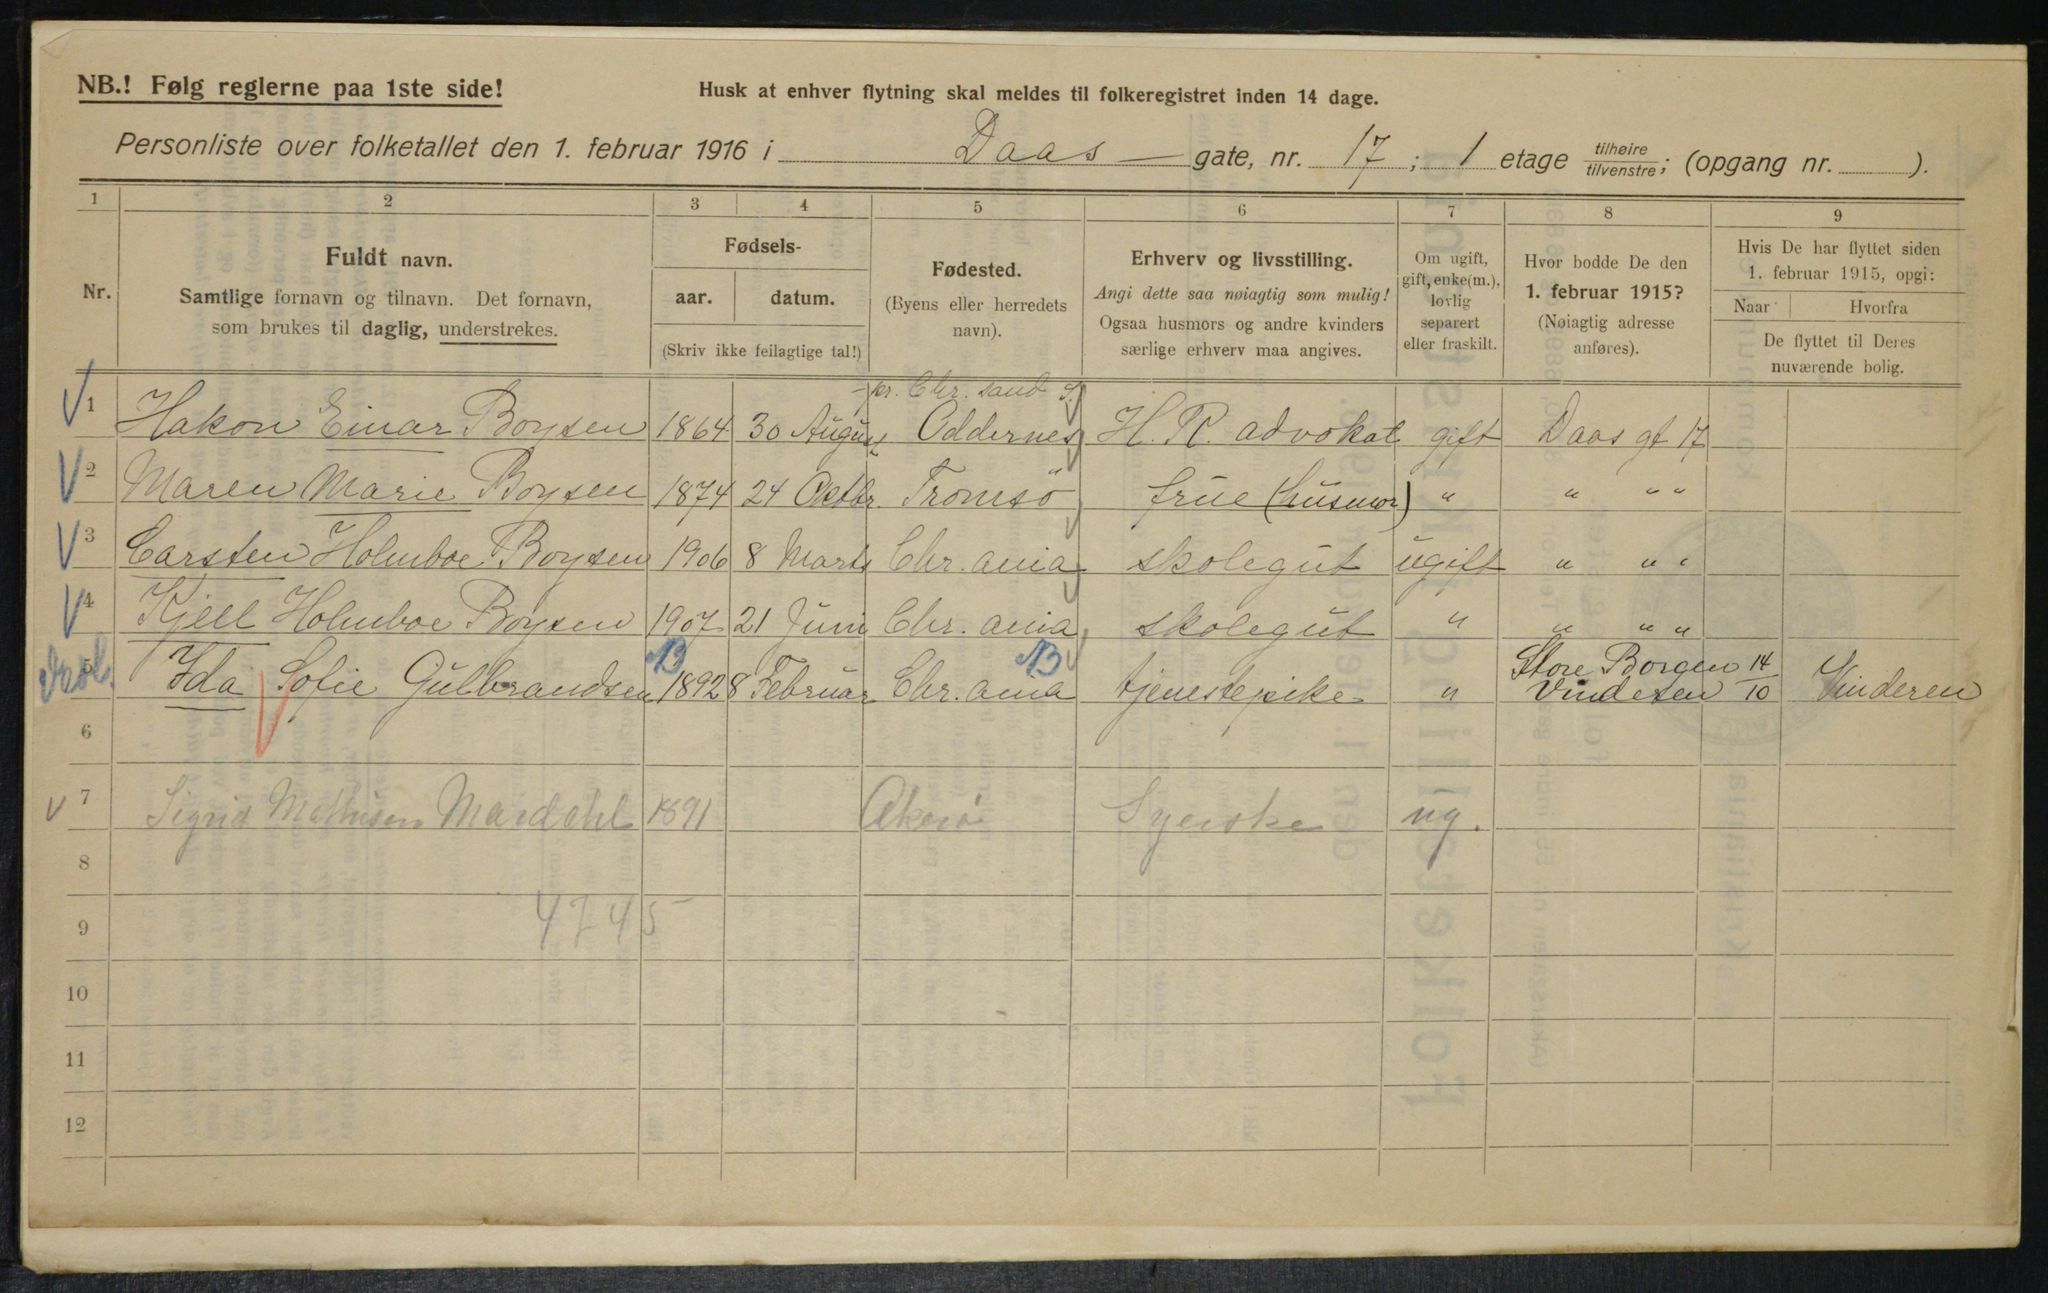 NB.! Følg reglerne paa 1ste side!
Husk at enhver flytning skal meldes til folkeregistret inden 14 dage.
Personliste over folketallet den 1. februar 1916 i Daas gate, nr. 17; 1 etage tilhøire tilvenstre; (opgang nr. ).
1 2 3 4 5 6 7 8 9
Nr.
Fuldt navn.
Samtlige fornavn og tilnavn. Det fornavn,
som brukes til daglig, understrekes.
Fødsels-
aar. datum.
(Skriv ikke feilagtige tal!)
Fødested.
(Byens eller herredets
navn).
Erhverv og livsstilling.
Angi dette saa nøiagtig som mulig!
Ogsaa husmors og andre kvinders
særlige erhverv maa angives.
Om ugift,
gift, enke(m.),
lovlig
separert
eller fraskilt.
Hvor bodde De den
1. februar 1915?
(Nøiagtig adresse
anføres).
Hvis De har flyttet siden
1. februar 1915, opgi:
Naar Hvorfra
De flyttet til Deres
nuværende bolig.
pr. Chr. sand S.
1 Hakon Einar Boysen 1864 30 August Oddernes H. R. advokat gift Daas gt 17
2 Maren Marie Boysen 1874 24 Oktbr. Tromsö frue (husmor) " " " "
3 Carsten Holmboe Boysen 1906 8 Marts Chr. ania skolegut ugift " " "
4 Kjell Holmboe Boysen 1907 21 Juni Chr. ania skolegut " " " "
B B Store Borgen 14
5 Ida Sofie Gulbrandsen 1892 8 Februar Chr. ania tjenestepike " Vinderen 10 Vinderen
6
7 Sigrid Mathisen Mardahl 1891 Akerø Syerske ug.
8
4745
9
10
11
12